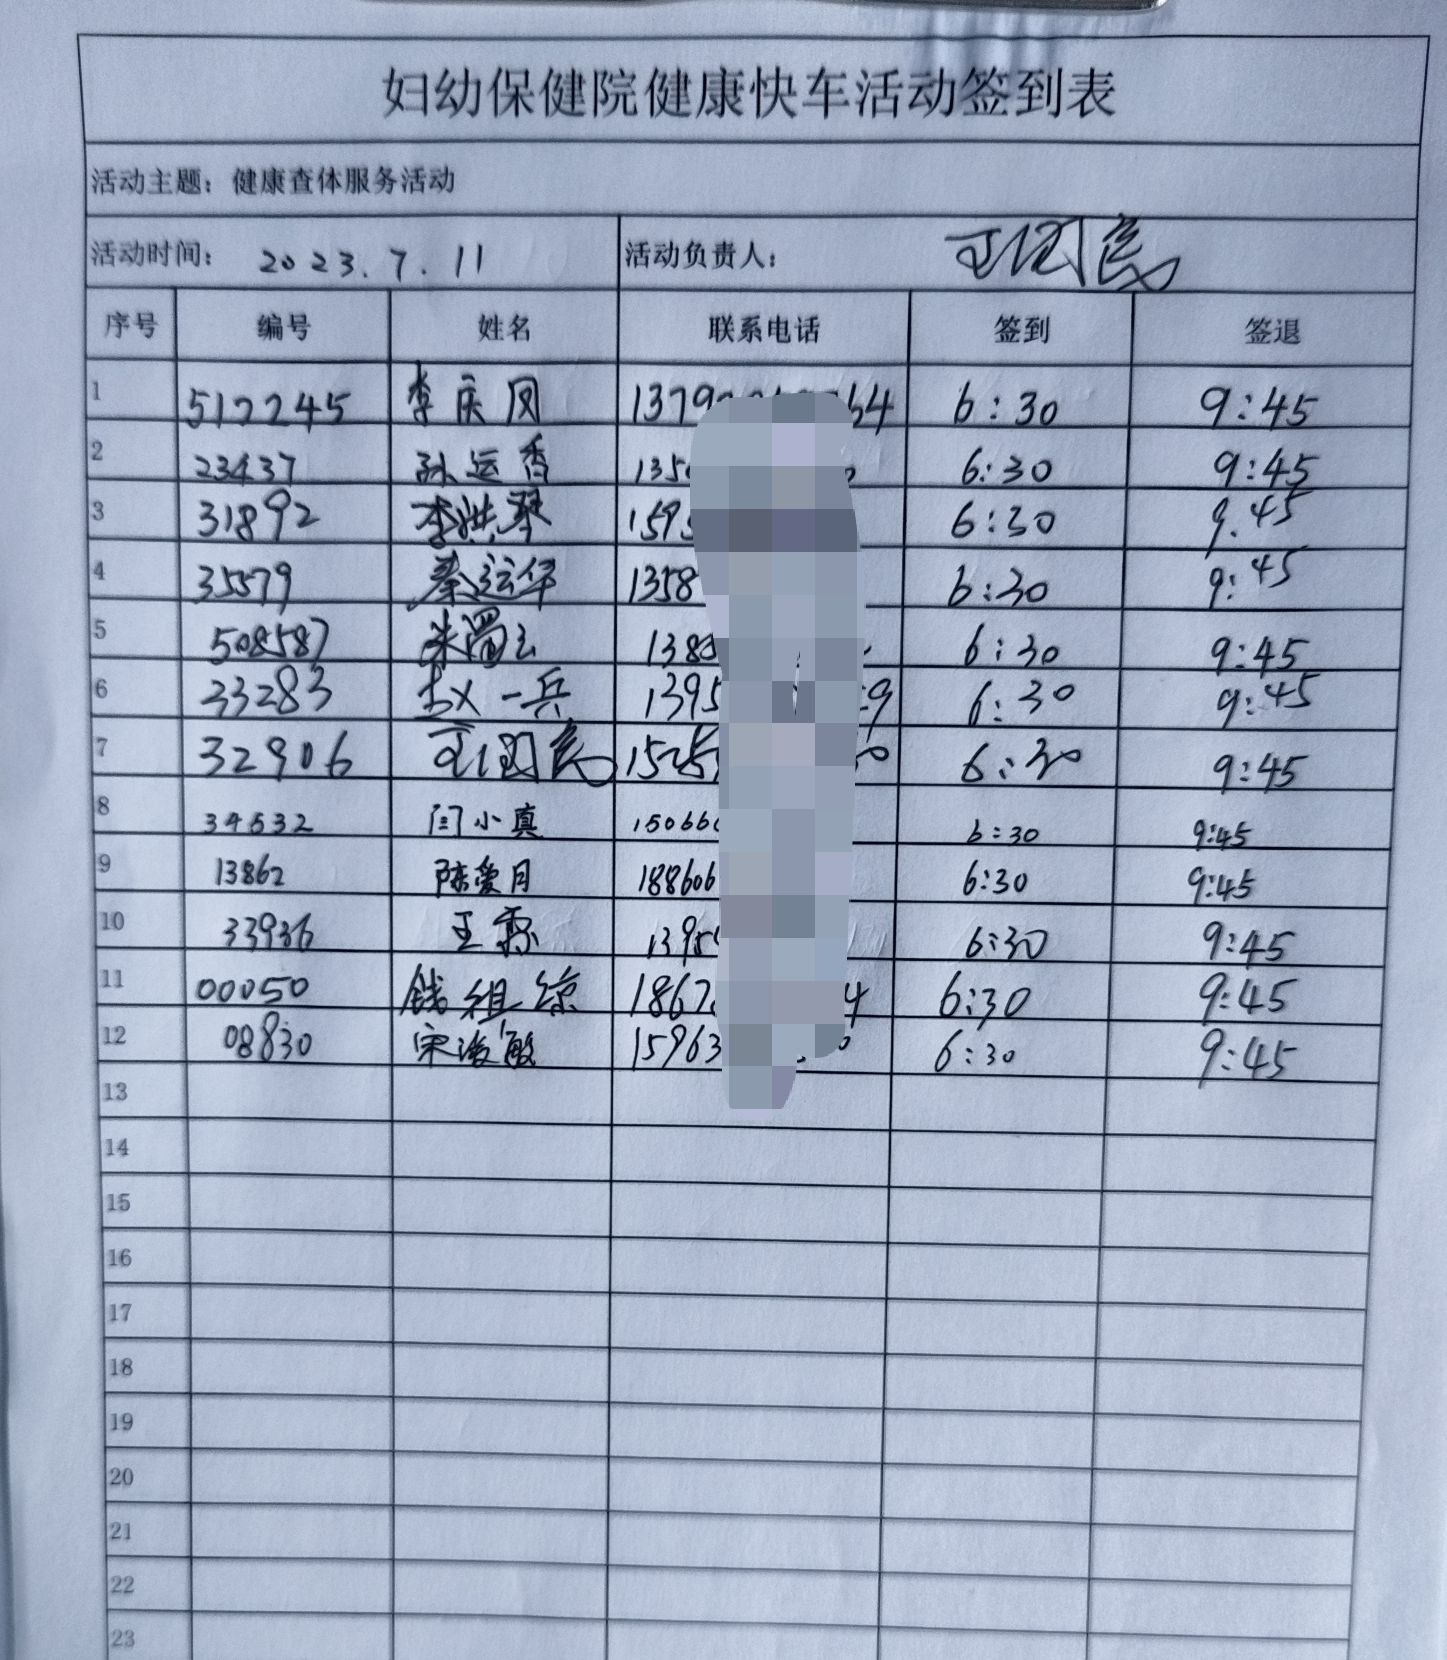 妇幼保健院健康快车活动签到表
活动主题：健康查体服务活动
活动时间： 2023.7.11 活动负责人： 王国良
序号 编号 姓名 联系电话 签到 签退
1 517245 李庆凤 1379 64 6:30 9:45
2 23437 孙运香 135 6:30 9:45
3 31892 李洪琴 1595 6:30 9.45
4 35579 秦运华 1358 6:30 9:45
5 508587 朱 云 138 6:30 9:45
6 23283 赵一兵 1395 9 6:30 9:45
7 32906 王国良 1525 0 6:30 9:45
8 34532 闫小真 15066 6:30 9:45
9 13862 陈爱月 188606 6:30 9:45
10 33936 王霖 1395 6:30 9:45
11 00050 钱组综 1867 4 6:30 9:45
12 08830 宋海敏 15963 6:30 9:45
13
14
15
16
17
18
19
20
21
22
23